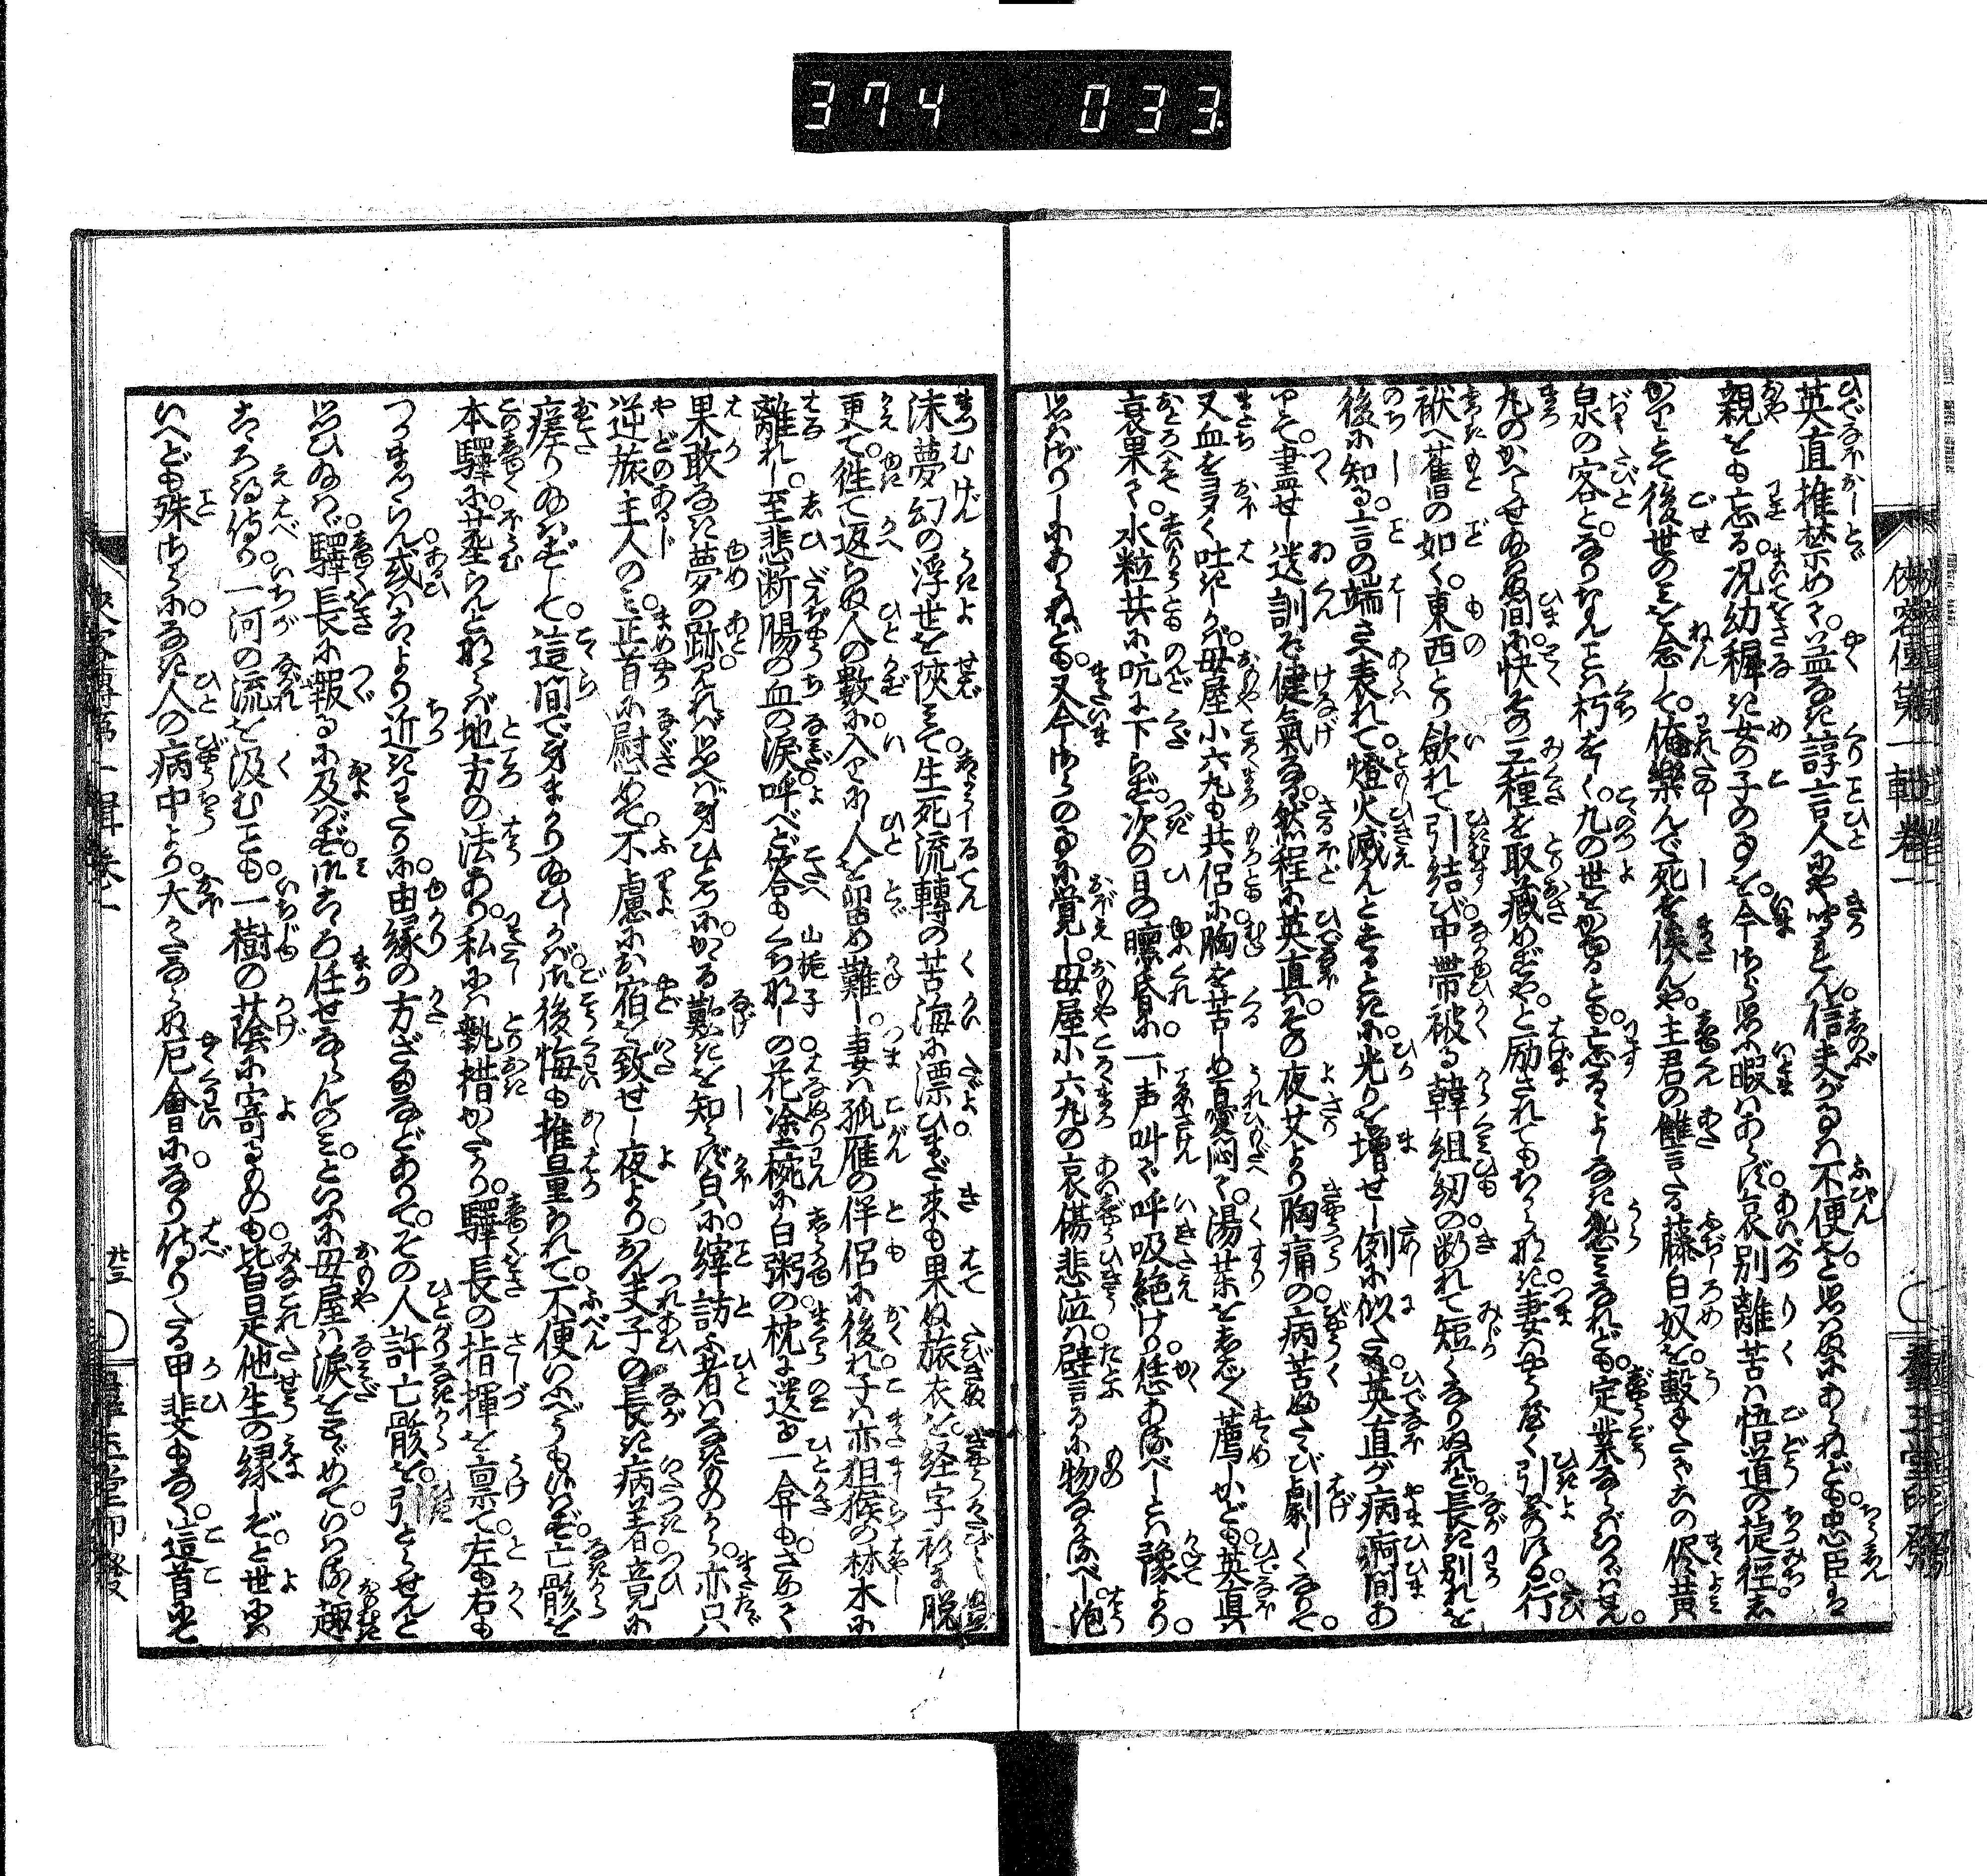 374 033
俠客傳第一輯卷一
英直推禁めて。益なき諄言人もや聞れん。信夫がなげくは不便と思はぬにあらねども。忠臣は
親をも忘る。况幼稚き女の子の事を。今さら思ふ暇はあらず。哀別離苦は悟道の捷徑。
後世のことを念じて。俺樂んで死を俟んや。主君の讐言たる藤白奴を撃まくさの侭黄
泉の客となりなんこと朽をしく。九の世をかゆるとも。忘るゝよしなき怨みなれども。定業ならばいかゞはせん。
九のかへらせぬ間に快その三種を取藏めずや。と勵されてもちからなき。妻はやうやく引よする。行
袱へ舊の如く。東西とり歛れて引結び中帶破る韓組紐の断れて短くなりぬれど。長き別れを
後に知る。言の端さへ表れて。燈火滅んとするときに。光りを増せし例に似たる。英直が病痾間あ
りて。盡せし送訓ぞ健氣なる。然程に英直は。その夜艾より胸痛の病苦ぬたゝび劇しくなりて。
又血をヨヨく吐きしかば。母屋小六九も共侶に胸を苦しめ憂悶て。湯藥をしば〳〵薦めしかども。英直は
衰果て。水粒共に吭に下らず。次の日の曛昏に一下声叫びて呼吸絶けり。恁あるべしとは豫より。
思はざりしにあらねども。又今さらのことに覺し。母屋小六九の哀傷悲泣は。譬るに物なかるべし。泡
沫夢幻の浮世を陜みて。生死流轉の苦海に漂ひ。まだ來も果ぬ旅衣を。経字衫に脱
更て。徃て返らぬ人の數に。入りにし人を留め難し。妻は孤雁の伴侶に後れ。子は亦狙猴の林木に
離れし。至悲断腸の血の涙。呼べど答もくち那しの花塗椀に白粥の。枕に送る一合も。さめて
果敢なき夢の跡。見れば思へば身ひとつに。かゝる歎きを知らず白に。縡訪ふ者はなきものから。亦只
逆旅主人のみ。正首に慰めて。不慮にお宿を致せし夜より。おん夫子の長き病著竟に
瘥りあはずして。這間で身まかりあひしかば。御後悔も推量られて。不便いふべうも侍らず。亡骸を
本驛に葬らんと那らば地方の法あり。私には執措かたかり。驛長の指揮を禀て左も右も
つかまつらん。或はこゝより近きわたりに。由縁の方ざまなどありて。その人許亡骸を。引とらせんと
思ひあはゞ。驛長に報るに及ばず。御こゝろ任せならんのみ。といふに母屋は涙をとゞめて。いはるゝ趣
こゝろ得侍り。一河の流を汲むことも。一樹の蔭に寄るものも。皆是他生の縁しぞと。世にも
いへども殊さらに。なき人の病中より。大かたならぬ厄會になり侍りたる甲斐もなく。這首にも
俠客傳第一輯卷一
廿三
群玉堂印發